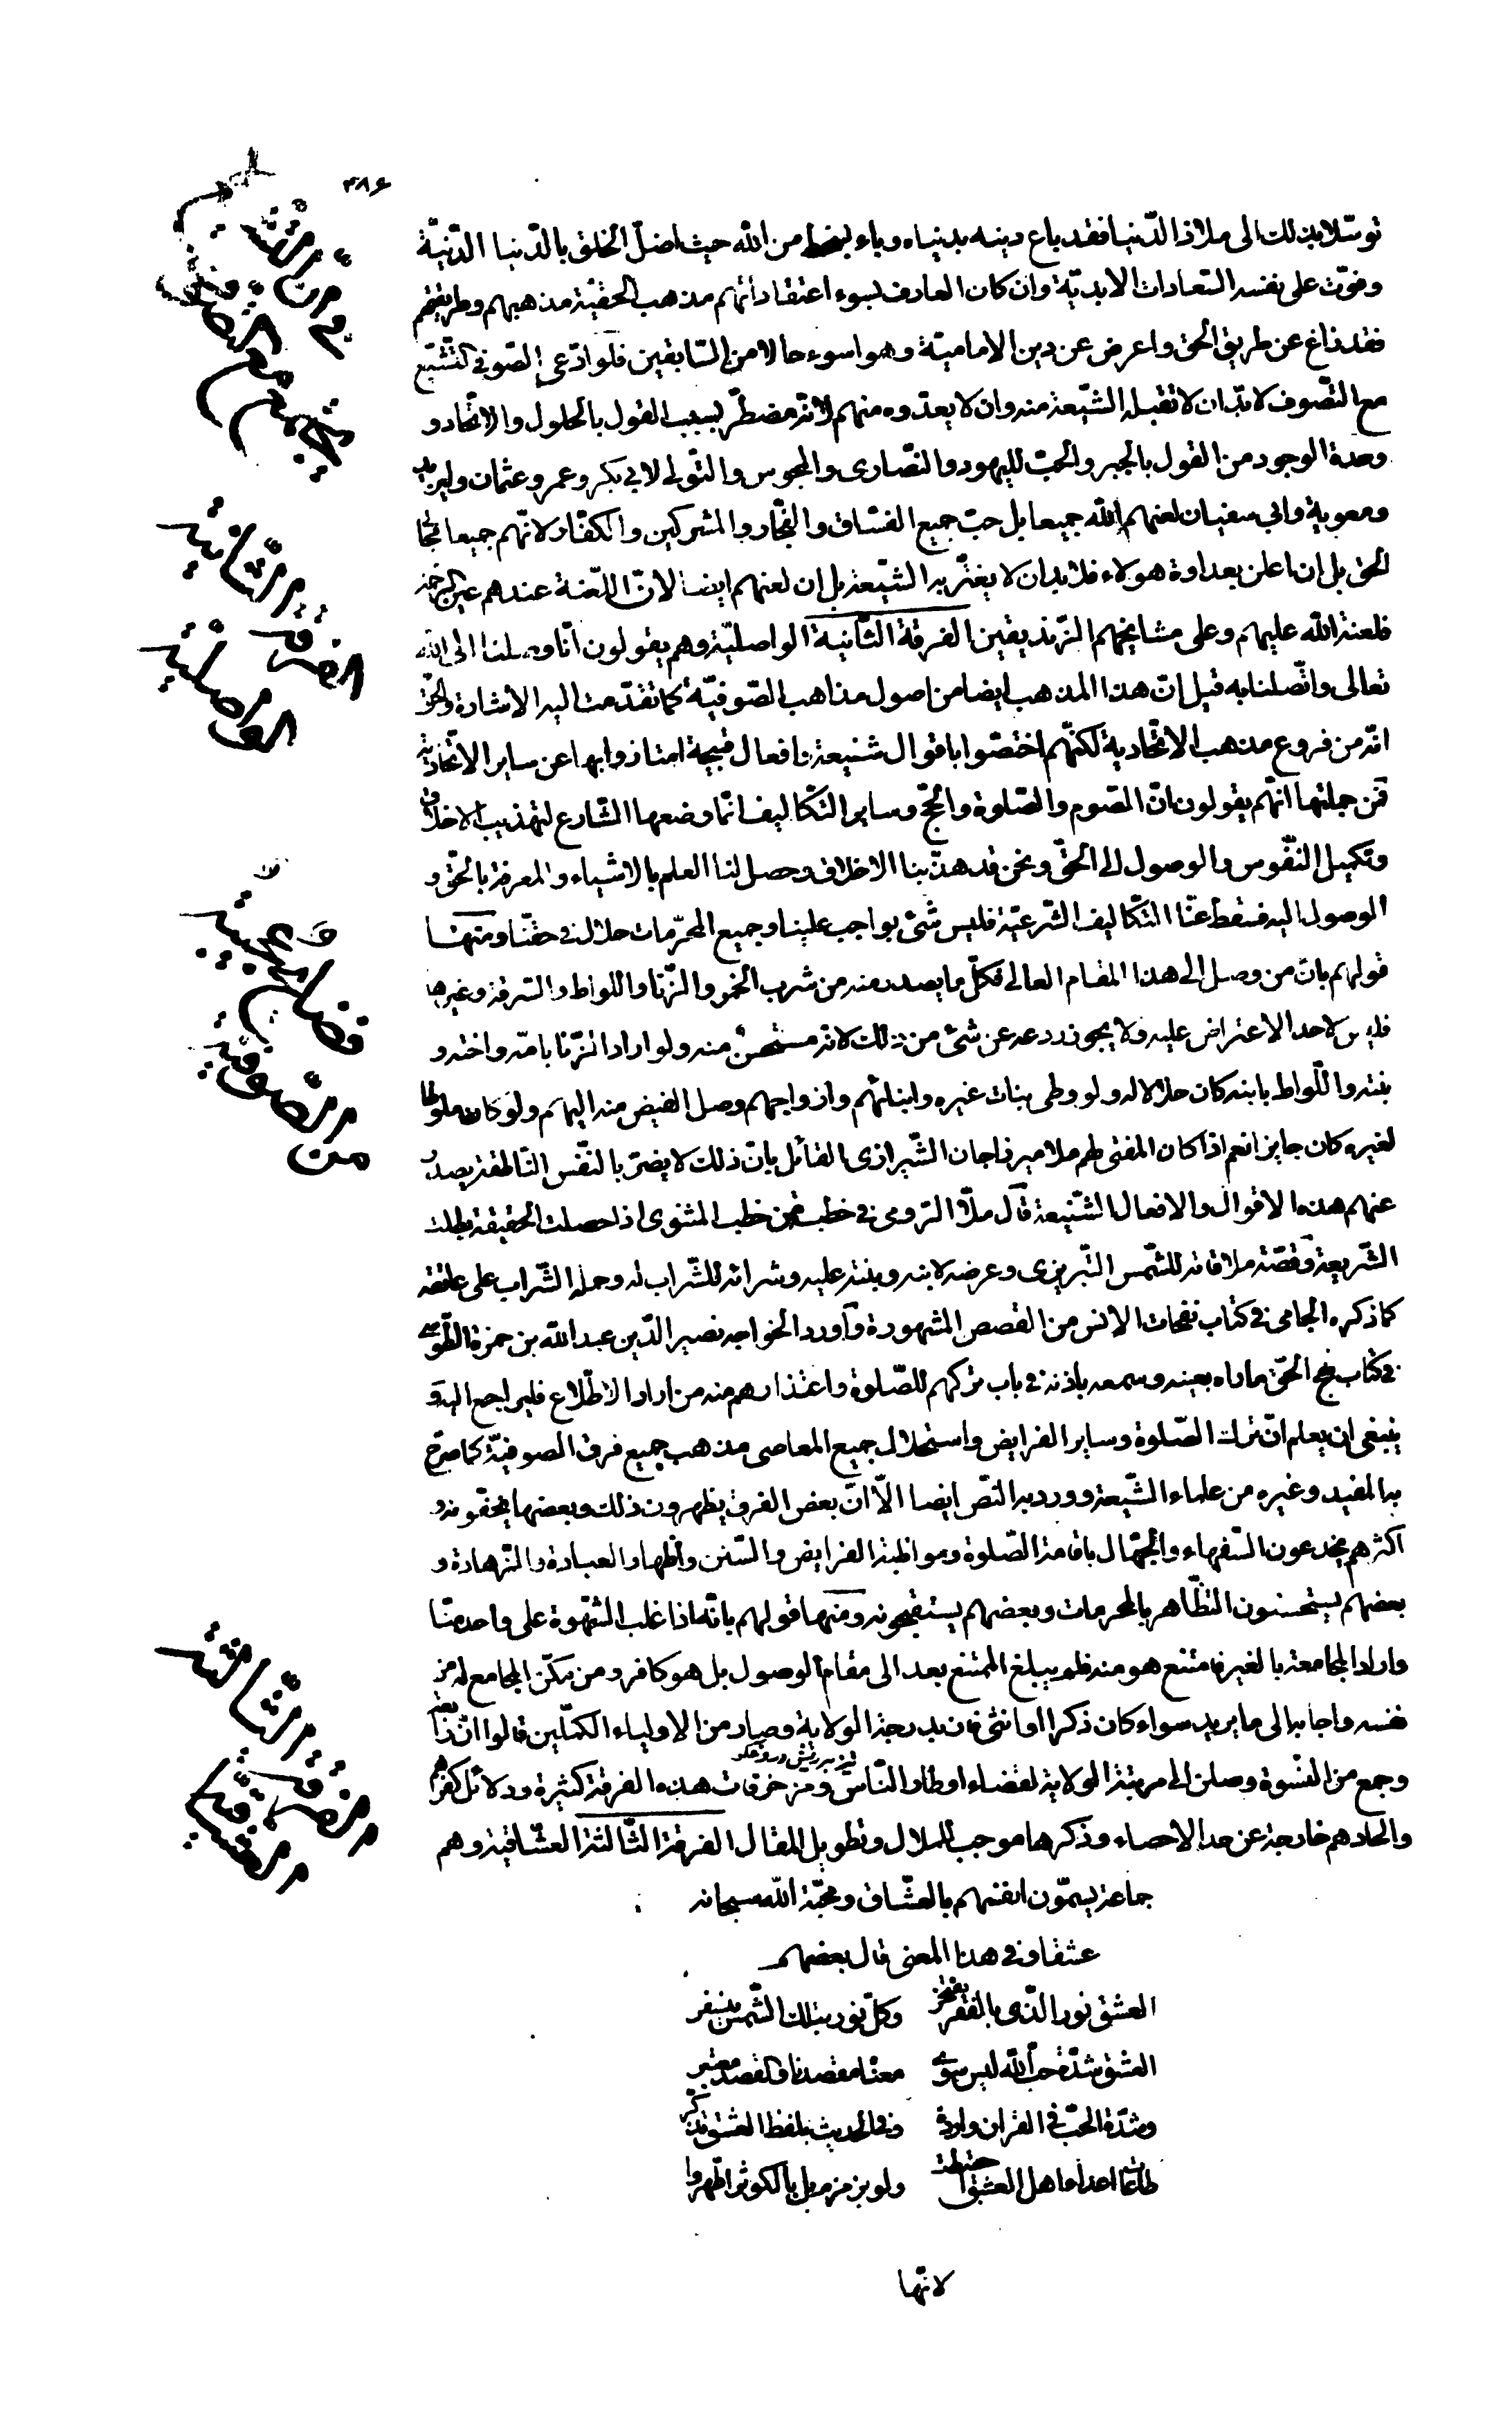 ٣٨۶
توسّلا بذلك الى ملاذ الدّنيا فقد باع دينه بدنياه وباء بسخط من الله حيث اضلّ الخلق بالدّنيا الدّنيّة
وفوّت على نفسه السّعادات الابديّة وان كان العارف بسوء اعتقاد انّهم مذهب الحقيّة مذهبهم وطريقتهم
فقد زاغ عن طريق الحق واعرض عن دين الاماميّة وهو اسوء حالا من السّابقين فلو ادّعى الصّوفى التّشيّع
مع التّصوف لا بدّ ان لا تقبله الشّيعة منه وان لا يعدّوه منهم لانّه مضطرّ بسبب القول بالحلول والاتّحاد و
وحدة الوجود من القول بالجبر والحبّ لليهود والنّصارى والمجوس والتّولى لابى بكر وعمر وعثمان ويزيد
ومعوية وابى سفيان لعنهم الله جميعا بل حبّ جميع الفسّاق والفجّار والمشركين والكفّار لانّهم جميعا
الحق بل ان اعلن بعداوة هولاء فلا بد ان لا يغترّ به الشّيعة بل ان لعنهم ايضا لانّ اللّعنة عندهم عين الرحمة
فلعنة الله عليهم وعلى مشايخهم الزّنديقين الفرقة الثّانية الواصليّة وهم يقولون انّا وصلنا الى الله
تعالى واتّصلنا به قيل انّ هذا المذهب ايضا من اصول مذاهب الصّوفيّة كما تقدّمت اليه الاشارة والحقّ
انّه من فروع مذهب الاتّحادية لكنّهم اختصّوا باقوال شنيعة وافعال قبيحة امتازوا بها عن ساير الاتّحاديّة
فمن جملتها انّهم يقولون انّ الصّوم والصّلوة والحجّ وساير التّكاليف انّما وضعها الشّارع لتهذيب الاخلاق
وتكميل النّفوس والوصول الى الحقّ ونحن قد هذّبنا الاخلاق وحصل لنا العلم بالاشياء والمعرفة بالحقّ و
الوصول اليه فسقط عنّا التّكاليف الشّرعيّة فليس شئ بواجب علينا وجميع المحرّمات حلال فى حقّنا ومنها
قولهم بانّ من وصل الى هذا المقام العالى فكلّ ما يصدر منه من شرب الخمر والزّنا واللواط والسّرقة وغيرها
فليس لاحد الاعتراض عليه ولا يجوز ردعه عن شئ من ذلك لانّه مستحسن منه ولو اراد الزّنا بامّه واخته و
بنته واللّواط بابنه كان حلالا له ولو وطى بنات غيره وابنائهم وازواجهم وصل الفيض منه اليهم ولو كان ملوطا
لغيره كان جايزا نعم اذا كان المفتى لهم ملا ميرزاجان الشّيرازى القائل بانّ ذلك لا يضرّ بالنّفس النّاطقة يصدر
عنهم هذه الاقوال والافعال الشّنيعة قال ملّا الرّومى فى خطبة من خطب المثنوى اذا حصلت الحقيقة بطلت
الشّريعة وقصّة ملاقاته للشّمس التّبريزى وعرضه لابنه وبنته عليه وشرائه للشّراب له وحمله الشّراب على عاتقه
كما ذكره الجامى فى كتاب نفحات الانس من القصص المشهورة واورد الخواجه نصير الدّين عبد الله بن حمزة الطّوسى
فى كتاب نهج الحقّ ما راه بعينه وسمعه باذنه فى باب تركهم للصّلوة واعتذارهم منه من اراد الاطّلاع فليراجع اليه و
ينبغى ان يعلم انّ ترك الصّلوة وساير الفرايض واستحلال جميع المعاصى مذهب جميع فرق الصوفيّة كما صرّح
به المفيد وغيره من علماء الشّيعة وورد به النّص ايضا الّا انّ بعض الفرق يظهرون ذلك وبعضها يخفونه و
اكثرهم يخدعون السّفهاء والجهّال باقامة الصّلوة ومواظبة الفرايض والسّنن واظهار العبادة والزّهادة و
بعضهم يستحسنون التظّاهر بالمحرمات وبعضهم يستقبحونه ومنها قولهم بانّه اذا غلب الشّهوة على واحد منّا
واراد المجامعة بالغير فامتنع هو منه فلم يبلغ الممتنع بعد الى مقام الوصول بل هو كافر ومن مكّن المجامع له من
نفسه واجابه الى ما يريد سواء كان ذكرا او انثى فان بدرجة الولاية وصار من الاولياء الكمّلين قالوا انّ
وجمع من النّسوة وصلن الى مرتبة الولاية لقضاء اوطار النّاس ومزخرفات هذه الفرقة كثيرة ودلائل كفرهم
والحادهم خارجة عن حد الاحصاء وذكرها موجب للملال وتطويل المقال الفرقة الثّالثة العشّاقية وهم
جماعة يسمّون انفسهم بالعشّاق ومحبّة الله سبحانه
عشقا وفى هذا المعنى قال بعضهم
العشق نور الّذى بالفقر يفتخر وكلّ نور بتلك الشّمس
العشق شدّة حبّ الله ليس سوى معنا مقصدنا والقصد معتبر
وشدّة الحبّ فى القران واردة وفى الحديث بلفظ العشق
طاعات اعداء اهل العشق حبطت ولو بزمزم بل بالكوثر اطّهروا
لانّها
الفرقة الثّانية
الواصليّة
فضايح عجيبة
من الصّوفيّة
الفرقة الثّالثة
العشّاقية